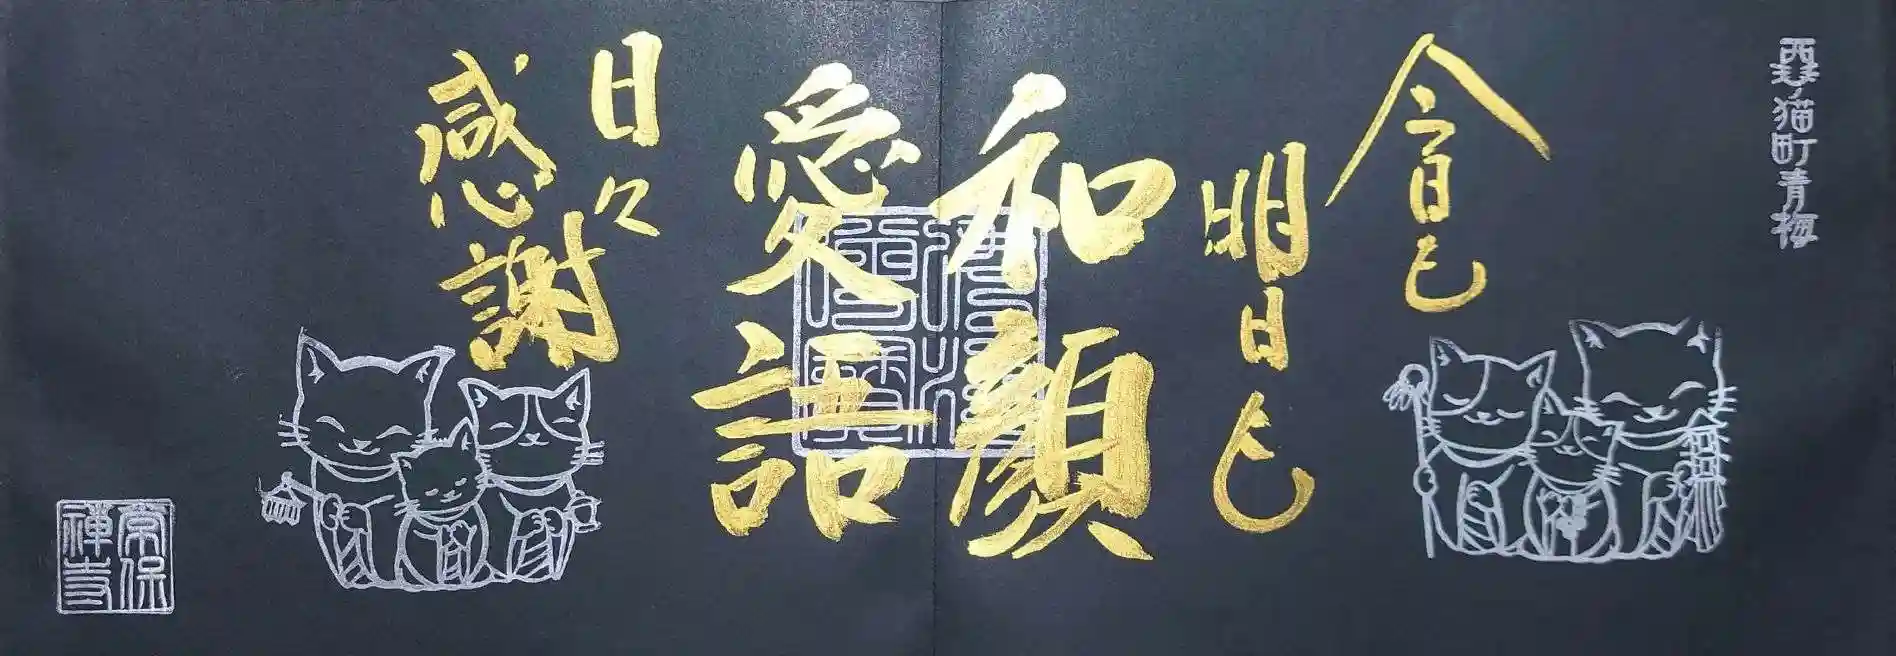 猫町青梅
今日も
明日も
和顔
愛語
日々
感謝
常保禅寺